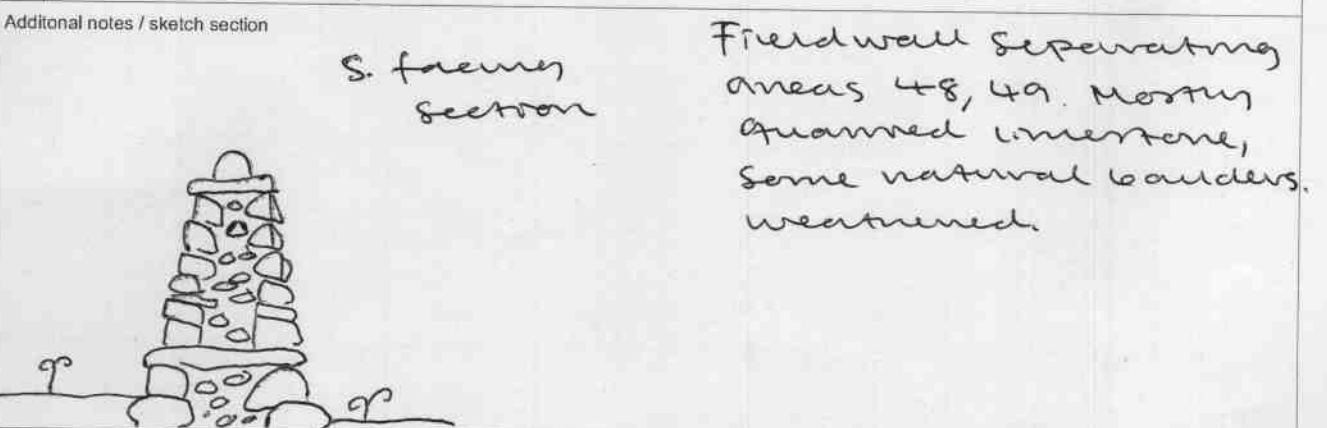 Additonal notes / sketch section
S. facing
section
Fieldwall separating
areas 48, 49. Mostly
quarried limestone,
some natural boulders.
weathered.